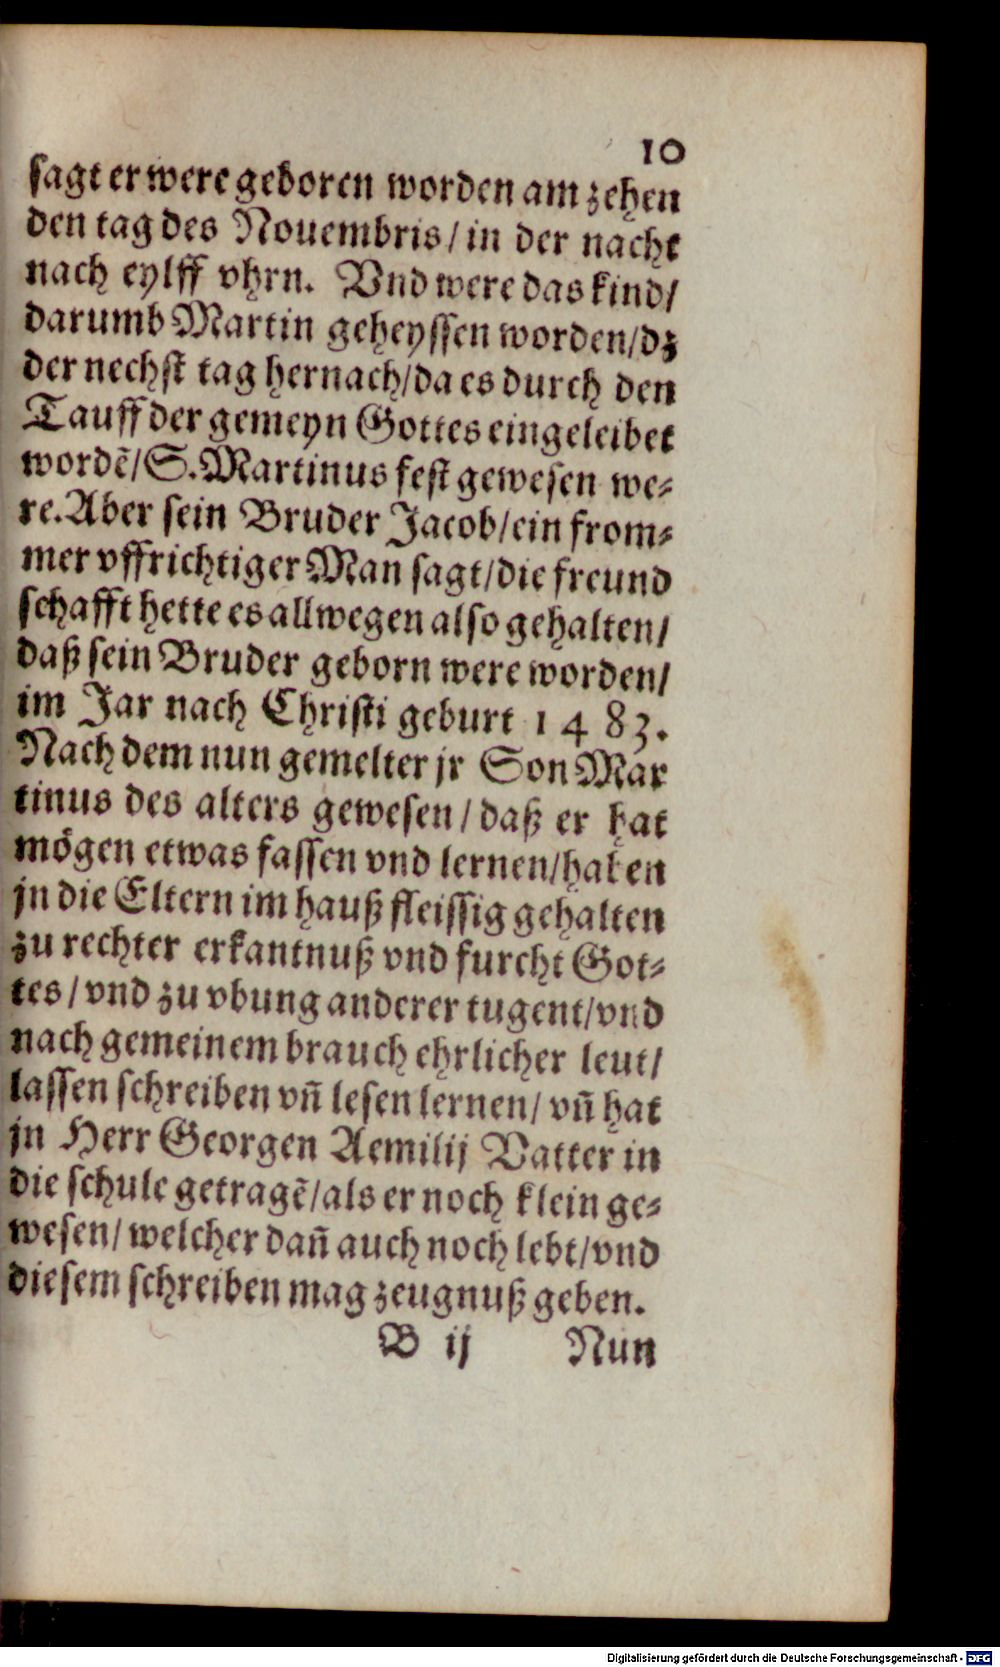 10
sagt er were geboren worden am zehen
den tag des Nouembris / in der nacht
nach eylff vhrn. Vnd were das kind /
darumb Martin geheyssen worden / dz
der nechst tag hernach / da es durch den
Tauff der gemeyn Gottes eingeleibet
wordẽ / S. Martinus fest gewesen we⸗
re. Aber sein Bruder Jacob / ein from⸗
mer vffrichtiger Man sagt / die freund
schafft hette es allwegen also gehalten /
daß sein Bruder geborn were worden /
im Jar nach Christi geburt 1483.
Nach dem nun gemelter jr Son Mar
tinus des alters gewesen / daß er hat
mögen etwas fassen vnd lernen / haben
jn die Eltern im hauß fleissig gehalten
zu rechter erkantnuß vnd furcht Got⸗
tes / vnd zu vbung anderer tugent / vnd
nach gemeinem brauch ehrlicher leut /
lassen schreiben vñ lesen lernen / vñ hat
jn Herr Georgen Aemilij Vatter in
die schule getragẽ / als er noch klein ge⸗
wesen / welcher dañ auch noch lebt / vnd
diesem schreiben mag zeugnuß geben.
B ij Nun
Digitalisierung gefördert durch die Deutsche Forschungsgemeinschaft - DFG